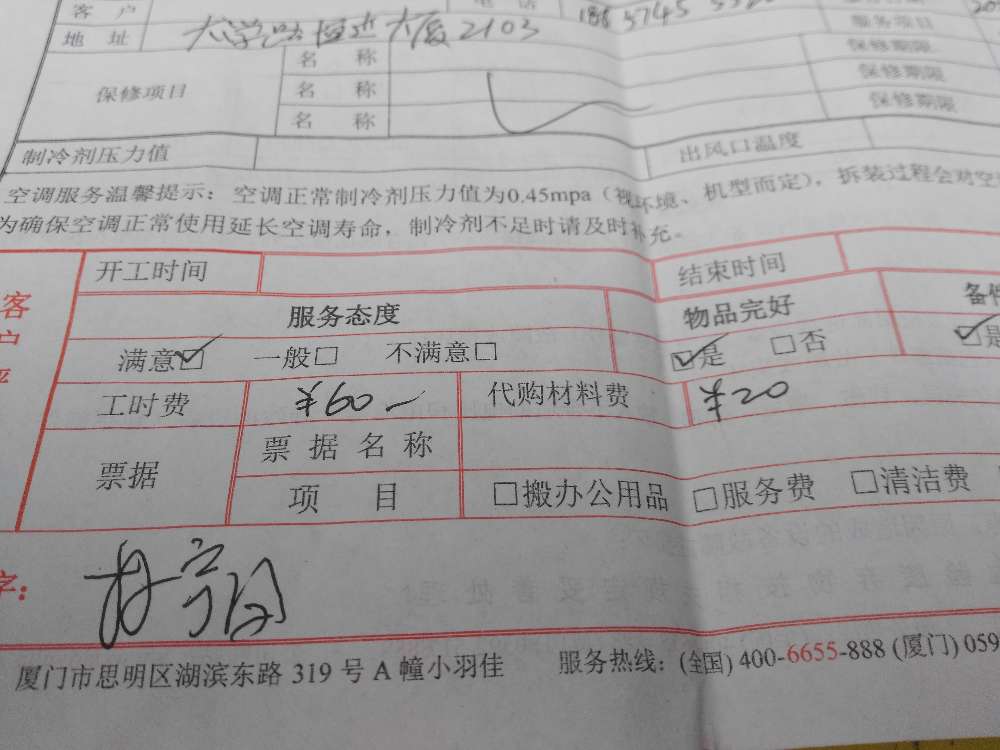 客 户 电 话
服务项目
地 址 大厦2103 保修期限
保修项目 名 称 保修期限
名 称 保修期限
名 称
制冷剂压力值 出风口温度
空调服务温馨提示：空调正常制冷剂压力值为0.45mpa（视环境、机型而定），拆装过程会对空
为确保空调正常使用延长空调寿命，制冷剂不足时请及时补充。
开工时间 结束时间
客户 服务态度 物品完好 备件
满意☑ 一般□ 不满意□ ☑是 □否 ☑是
工时费 ¥60 代购材料费 ¥20
票据 票据名称
项 目 □搬办公用品 □服务费 □清洁费
字：
厦门市思明区湖滨东路 319 号 A 幢小羽佳 服务热线：(全国) 400-6655-888 (厦门) 059